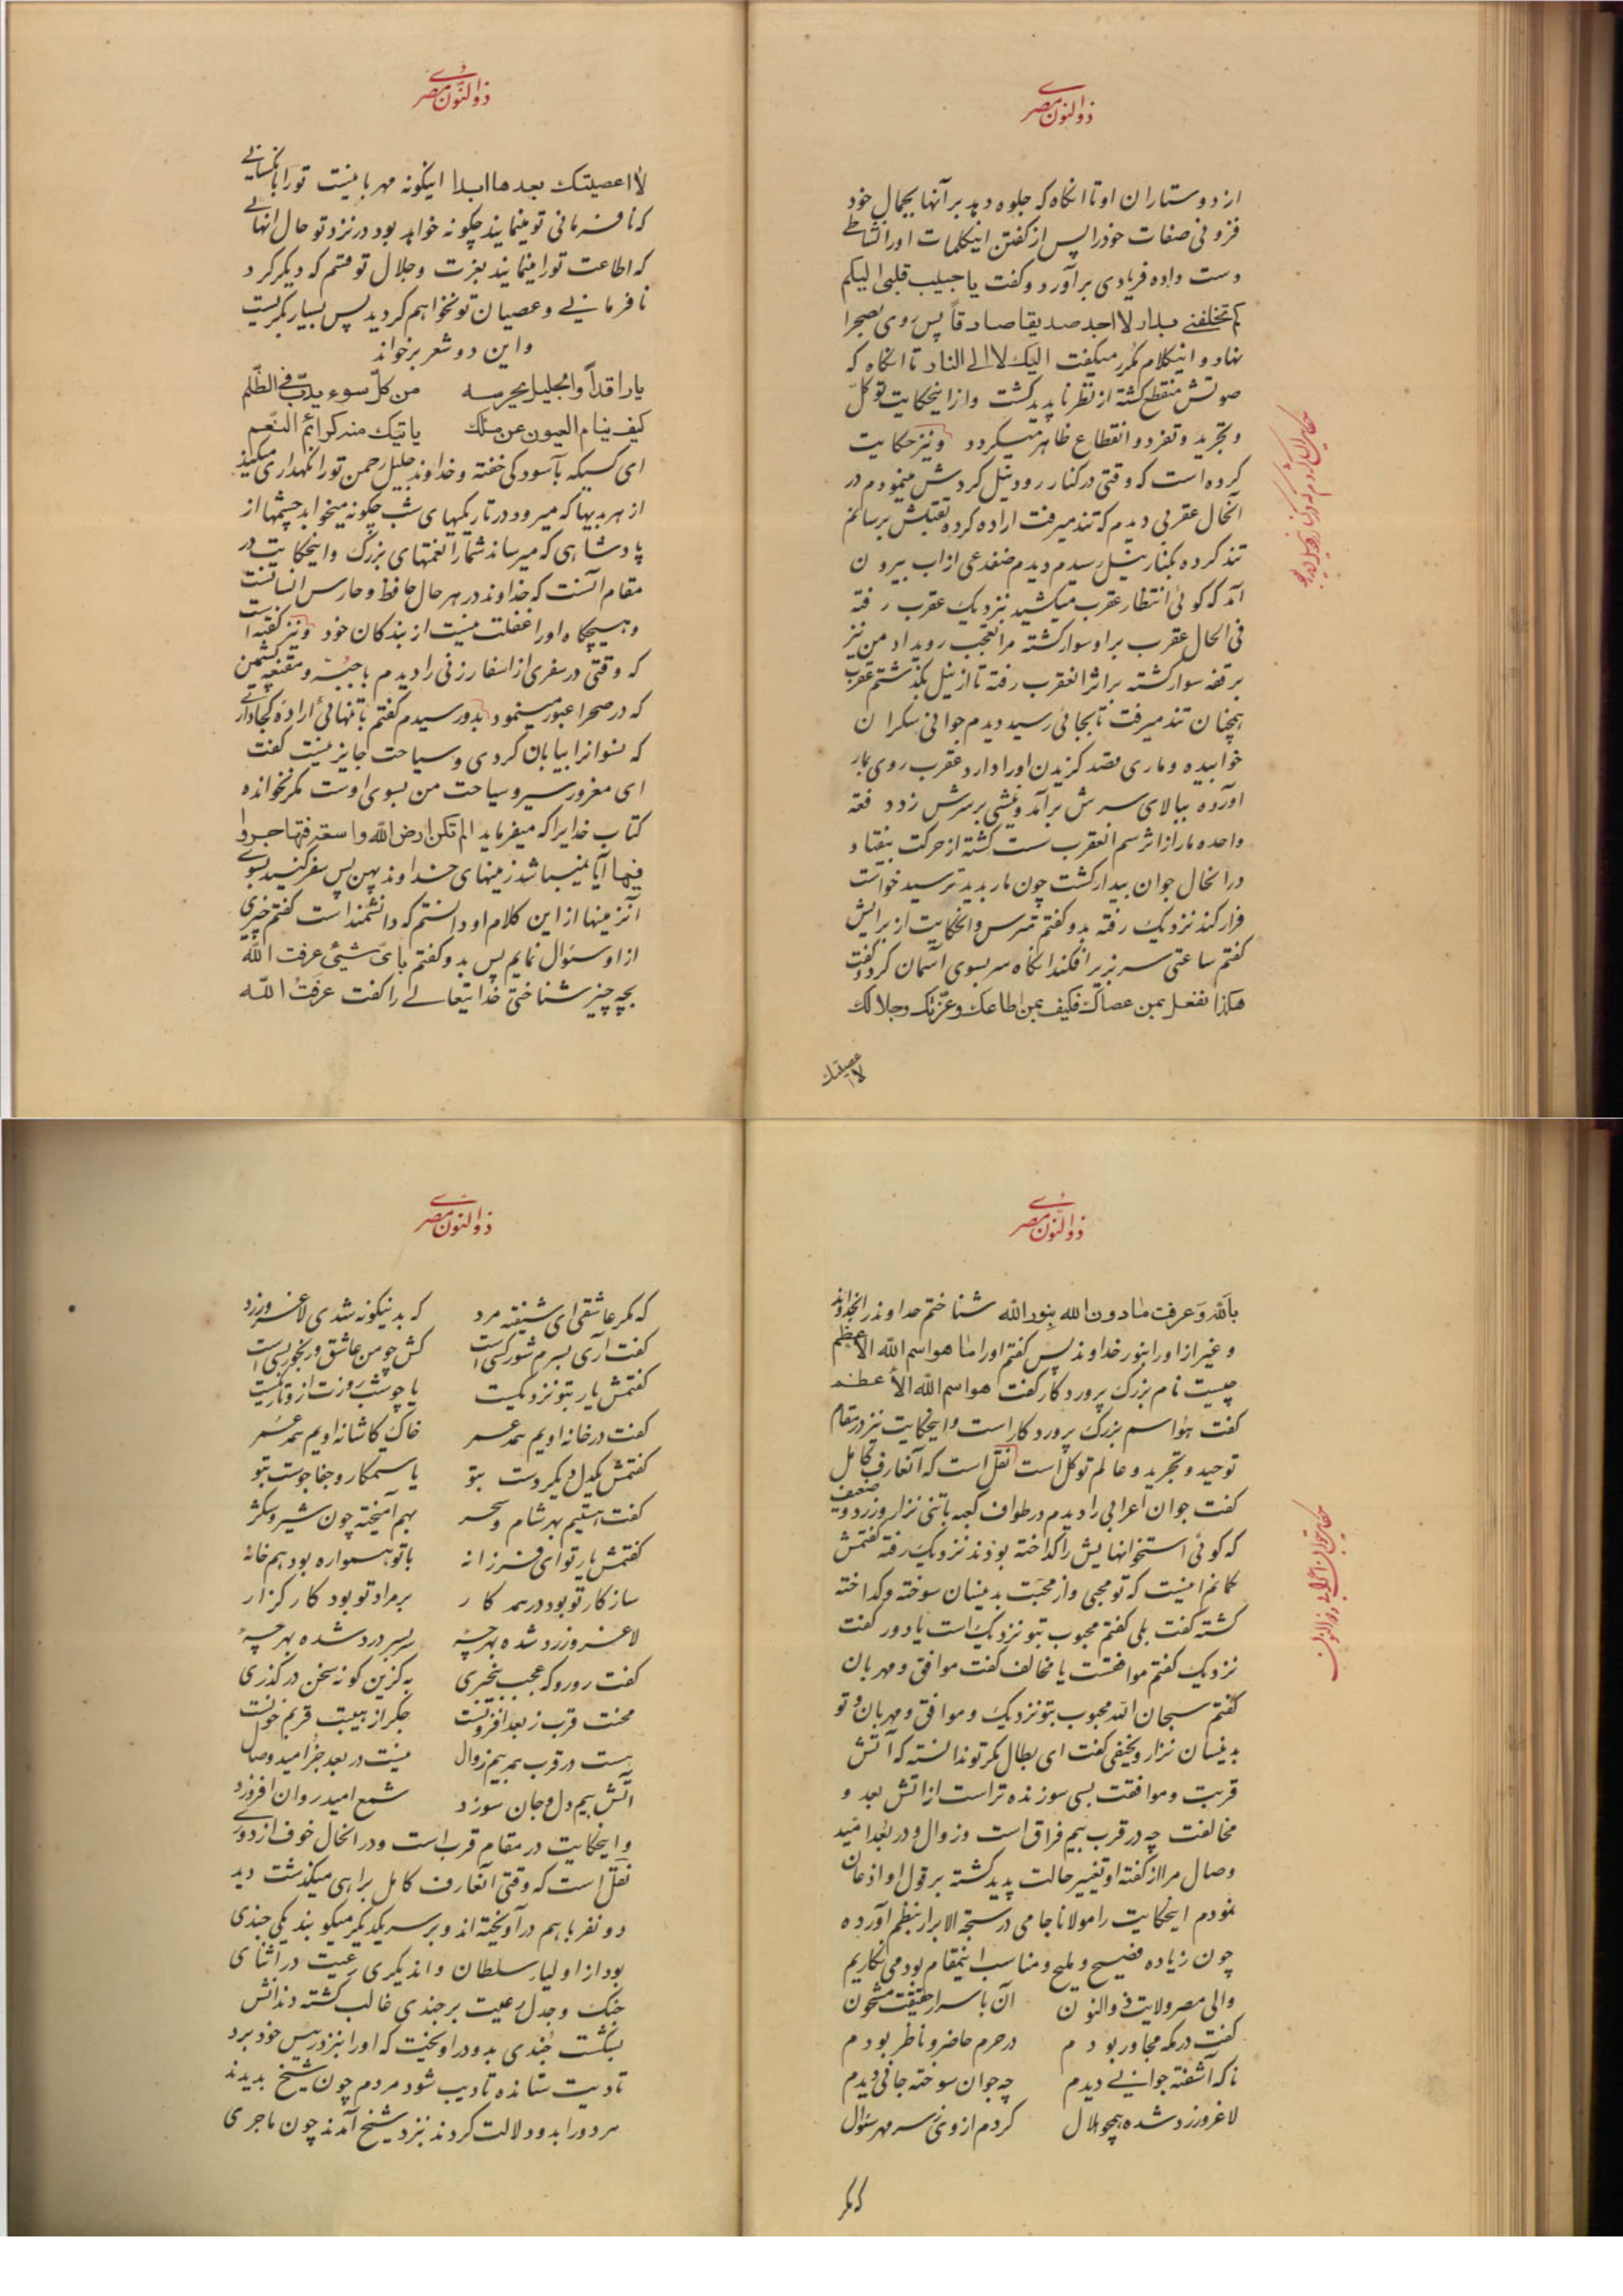 ذوالنون مصری
از دوستاران او تا انگاه که جلوه دهد بر آنها بجمال خود
فزونی صفات خود را پس از گفتن اینکلمات اورا نشاطی
دست داده فریادی برآورد و گفت یا حبیب قلبی الیکم
کم تخلفنی بدار لا اجد صدیقا صادقاً پس روی بصحرا
نهاد و اینکلام مکرر میگفت الیک لا الی النار تا انگاه که
صوتش منقطع گشته از نظر ناپدید گشت و از اینحکایت توکل
و تجرید و تفرد و انقطاع ظاهر میگردد و نیز حکایت
کرده است که وقتی در کنار رود نیل گردش مینمودم در
آنحال عقربی دیدم که تند میرفت اراده کرده بقتلش برسانم
تند کرده بکنار نیل رسیدم دیدم ضفدعی از اب بیرون
آمد که گوئی انتظار عقرب میکشید نزدیک عقرب رفته
فی الحال عقرب بر او سوار گشته مرا تعجب رویداد من نیز
بر قفه سوار گشته بر اثر انعقرب رفته تا از نیل بگذشتم عقرب
همچنان تند میرفت تا بجائی رسید دیدم جوانی سکران
خوابیده و ماری قصد گزیدن اورا دارد عقرب روی بمار
آورده ببالای سرش برآمد و نیشی بر سرش زد دفعة
واحده مار از اثر سم انعقرب سست گشته از حرکت بیفتاد
در انحال جوان بیدار گشت چون مار بدید ترسید خواست
فرار کند نزدیک رفته بدو گفتم مترس و انحکایت از برایش
گفتم ساعتی سر بزیر افکند انگاه سر بسوی آسمان کرد و گفت
هکذا تفعل بمن عصاک فکیف بمن اطاعک وعزتک وجلالک
لا عصیتک
حکایت در کنار رود نیل
ذوالنون مصری
لا اعصیتک بعدها ابدا اینگونه مهربانیست تو را با کسانی
که نافرمانی تو مینمایند چگونه خواهد بود در نزد تو حال انهائی
که اطاعت تورا مینمایند بعزت و جلال تو قسم که دیگر گرد
نافرمانی و عصیان تو نخواهم گردید پس بسیار بگریست
و این دو شعر برخواند
یا راقداً والجلیل یحرسه من کلّ سوء یدبّ فی الظّلم
کیف ینام العیون عن ملک یاتیک منه کرائم النّعم
ای کسیکه بآسودگی خفته و خداوند جلیل رحمن تورا نگهداری میکند
از هر بدیها که میرود در تاریکیهای شب چگونه میخوابد چشمها از
پادشاهی که میرساند شمارا نعمتهای بزرگ و اینحکایت در
مقام آنست که خداوند در هر حال حافظ و حارس انسانست
و هیچگاه اورا غفلت نیست از بندگان خود و نیز گفته است
که وقتی در سفری از اسفار زنی را دیدم با جبّه و مقنعه پشمین
که در صحرا عبور مینمود بدو رسیدم گفتم با تنهائی اراده کجا داری
که نسوانرا بیابان گردی و سیاحت جایز نیست گفت
ای مغرور سیر و سیاحت من بسوی اوست مگر نخوانده
کتاب خدایرا که میفرماید الم تکن ارض الله واسعة فتهاجروا
فیها آیا نمیباشد زمینهای خداوند پهن پس سفر کنید بسوی
آنزمینها از این کلام او دانستم که دانشمند است گفتم خبری
از او سئوال نمایم پس بدو گفتم بای شیئی عرفت الله
بچه چیز شناختی خدایتعالی را گفت عرفت الله
ذوالنون مصری
بالله وعرفت مادون الله بنور الله شناختم خداوند را بخداوند
و غیر از او را بنور خداوند پس گفتم اورا ما هو اسم الله الاعظم
چیست نام بزرگ پروردگار گفت هو اسم الله الأعظم
گفت هو اسم بزرگ پروردگار است و اینحکایت نیز در مقام
توحید و تجرید و عالم توکل است نقل است که آنعارف کامل
گفت جوان اعرابی را دیدم در طواف کعبه باتنی نزار و زرد و ضعیف
که گوئی استخوانهایش را گداخته بودند نزدیک رفته گفتمش
گمانم اینست که تو محبی و از محبت بدینسان سوخته و گداخته
گشته گفت بلی گفتم محبوب بتو نزدیک است یا دور گفت
نزدیک گفتم موافقست یا مخالف گفت موافق و مهربان
گفتم سبحان الله محبوب بتو نزدیک و موافق و مهربان و تو
بدینسان نزار و نحیفی گفت ای بطال مگر تو ندانسته که آتش
قربت و موافقت بسی سوزنده تر است از اتش بعد و
مخالفت چه در قرب بیم فراق است و زوال و در بعد امید
وصال مرا از گفته او تغییر حالت پدید گشته بر قول او اذعان
نمودم اینحکایت را مولانا جامی در سبحة الابرار بنظم آورده
چون زیاده فصیح و ملیح و مناسب اینمقام بود می نگاریم
والی مصر ولایت ذوالنون آن باسرار حقیقت مشحون
گفت در مکه مجاور بودم در حرم حاضر و ناظر بودم
ناگه آشفته جوانی دیدم چه جوان سوخته جانی دیدم
لاغر و زرد شده همچو هلال کردم از وی ز سر مهر سئوال
که مگر
حکایت جوان اعرابی و ذوالنون
ذوالنون مصری
که مگر عاشقی ای شیفته مرد که بدینگونه شدی لاغر و زرد
گفت آری بسرم شور کسی است کش چو من عاشق رنجور بسی است
گفتمش یار بتو نزدیکست یا چو شب روزت از و تاریکست
گفت در خانه اویم همه عمر خاک کاشانه اویم همه عمر
گفتمش یکدل و یکروست بتو یا ستمکار و جفاجوست بتو
گفت هستیم بهر شام و سحر بهم آمیخته چون شیر و شکر
گفتمش یار تو ای فرزانه با تو همواره بود هم خانه
سازگار تو بود در همه کار بر مراد تو بود کارگزار
لاغر و زرد شده بهر چه سر بسر درد شده بهر چه
گفت رو رو که عجب بیخبری به کزین گونه سخن درگذری
محنت قرب ز بعد افزونست جگر از هیبت قربم خونست
هست در قرب همه بیم زوال نیست در بعد جز امید وصال
آتش بیم دل و جان سوزد شمع امید روان افروزد
و اینحکایت در مقام قرب است و در انحال خوف از دوری
نقل است که وقتی آنعارف کامل براهی میگذشت دید
دو نفر باهم درآویخته اند و بر سر یکدیگر میکوبند یکی جندی
بود از اولیاء سلطان و اندیگری رعیت در اثنای
جنگ و جدل رعیت بر جندی غالب گشته دندانش
بشکست جندی بدو در اویخت که اورا بنزد رئیس خود برد
تا دیت ستانده تادیب شود مردم چون شیخ بدیدند
هر دو را بدو دلالت کردند نزد شیخ آمدند چون ماجری